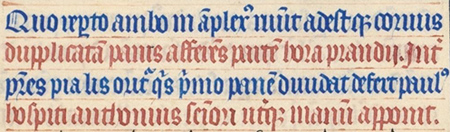 Quo reꝑto ambo in ãplexꝰ ruũt adestqꝫ coruus
dupplicatam panis afferẽs partẽ hora prandij. Int̃
p̃res pia lis orit̃ q̃s p̃mo panẽ diuidat defert paulꝰ
hospiti anthonius seĩori ut̃qꝫ manũ apponit.